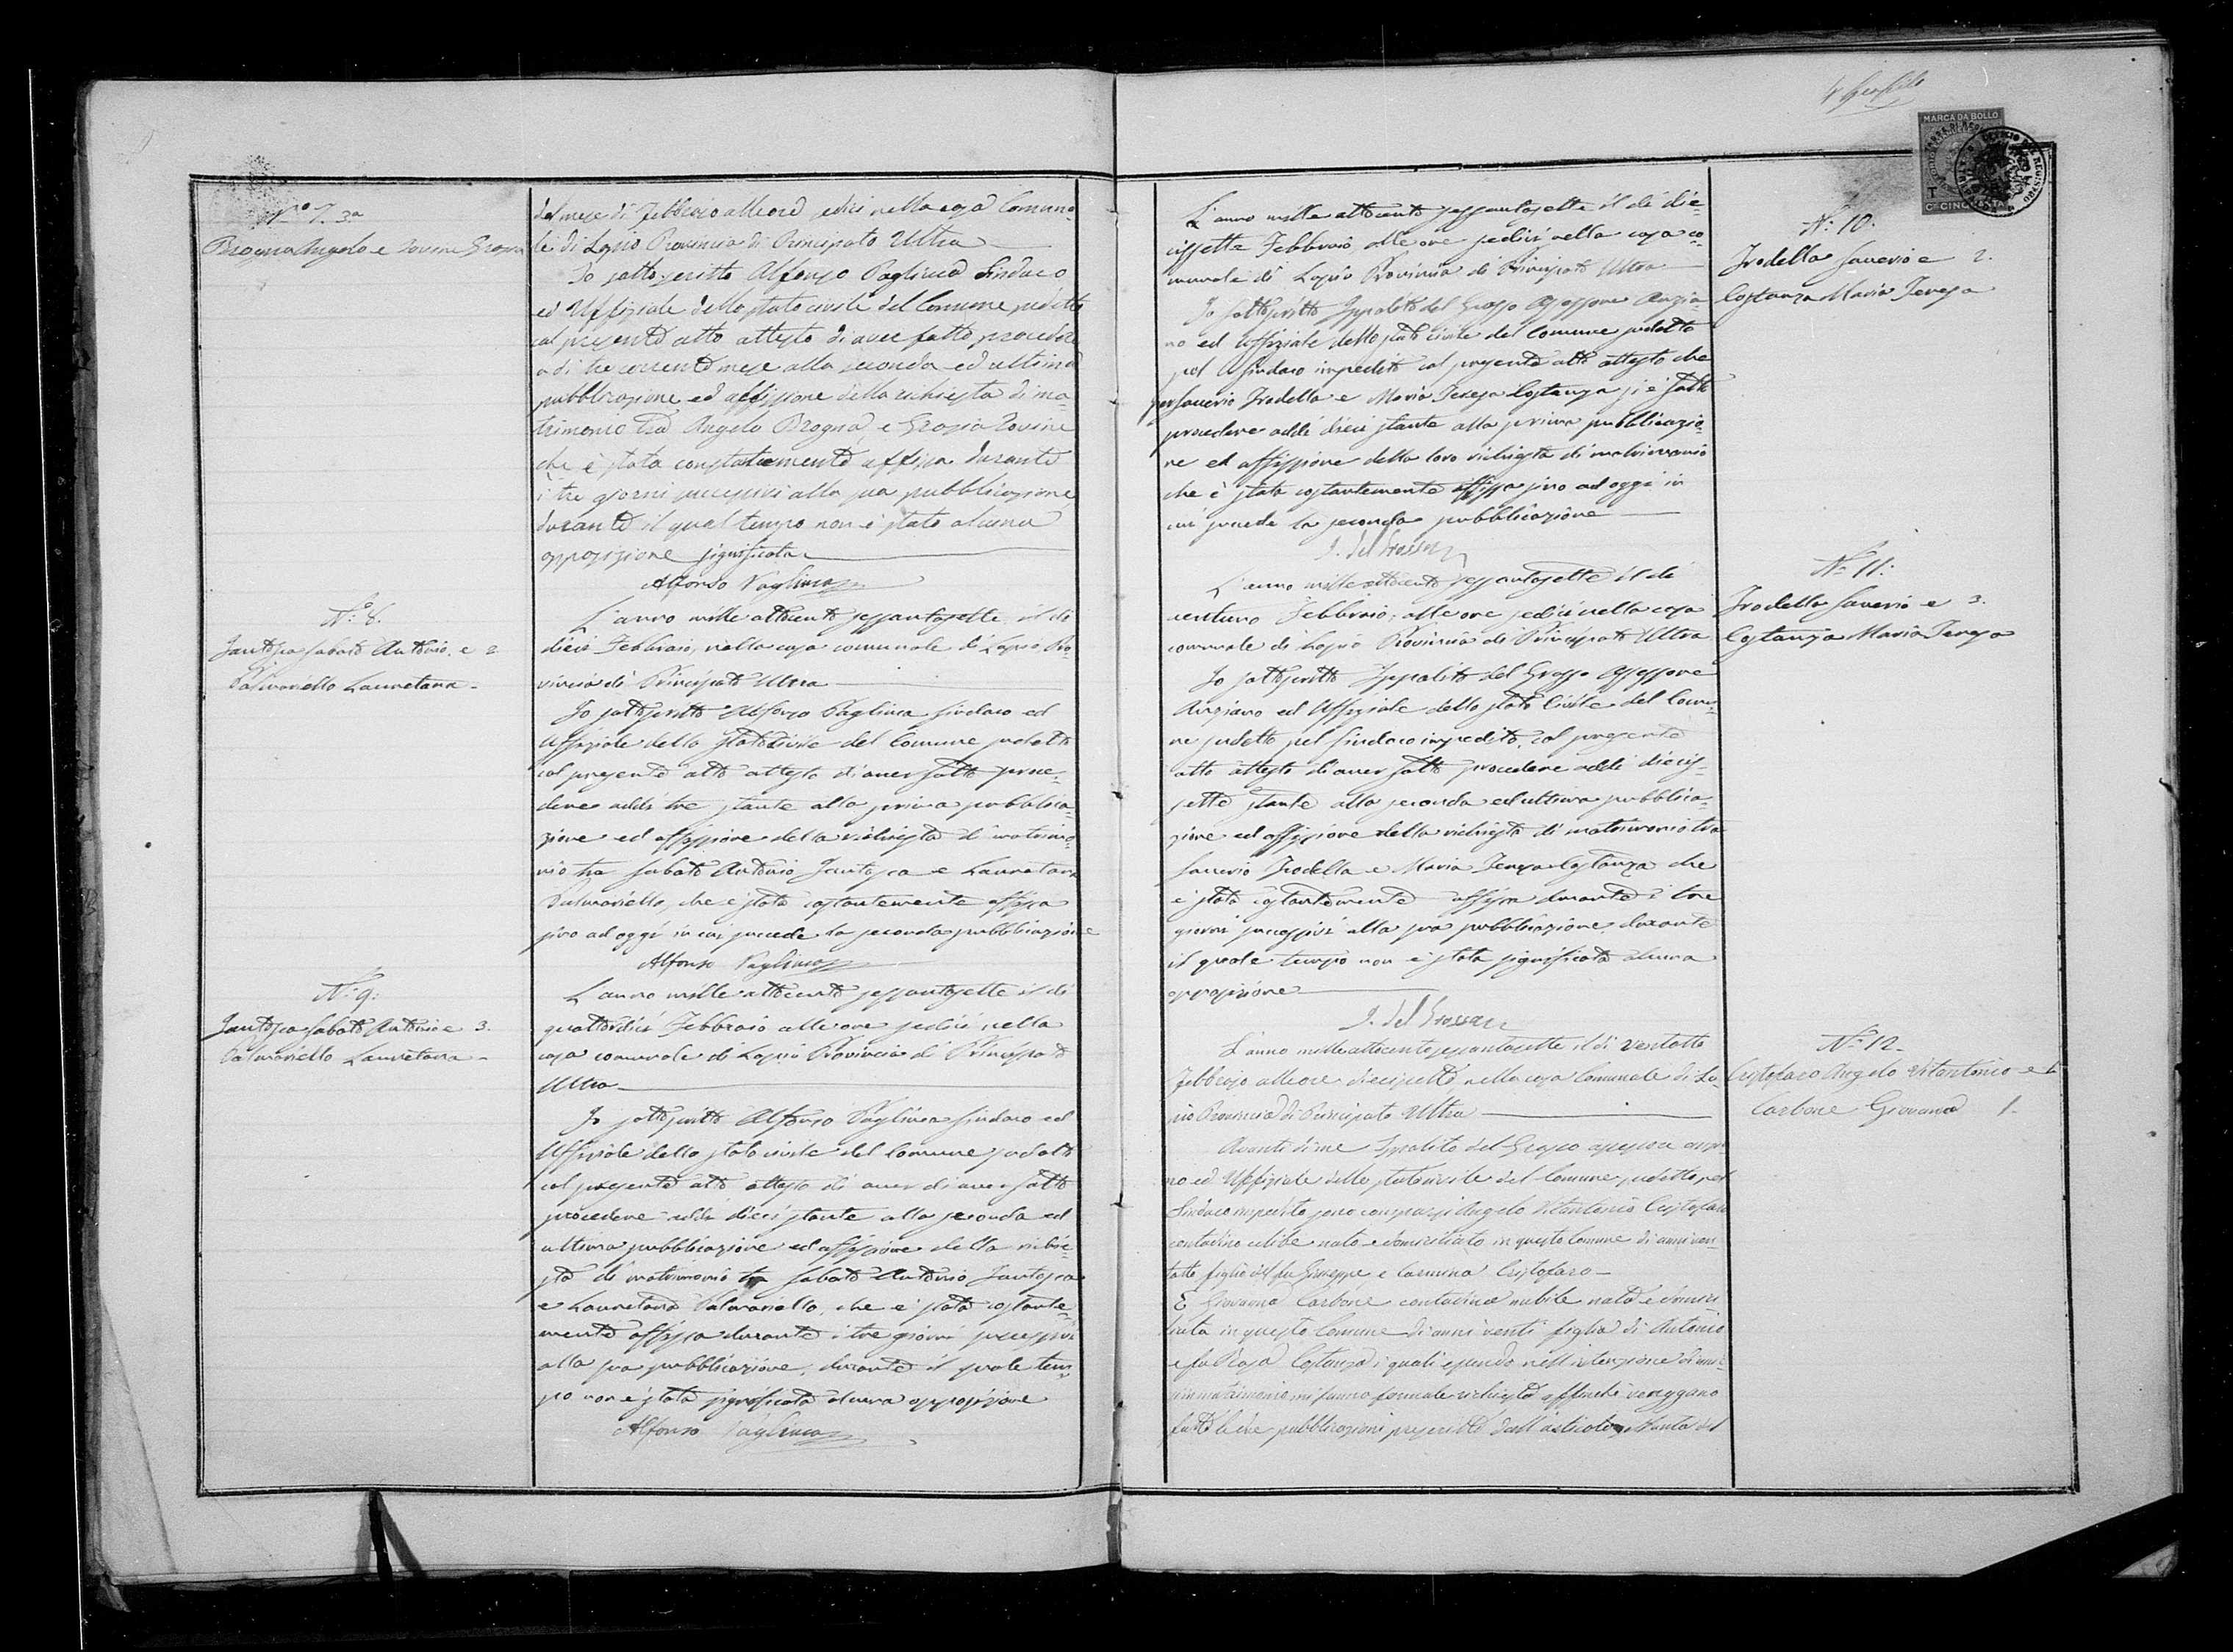 N.° 7. 3a
Brogna Angelo e Iovine Grazia
del mese di Febbraio alle ore sedici nella casa Comuna-
le di Lapio Provincia di Principato Ultra
Io sottoscritto Alfonso Pagliuca Sindaco
ed Uffiziale dello stato civile del Comune sudetto
col presente atto attesto di aver fatto procedere
a dì tre corrente mese alla seconda ed ultima
pubblicazione ed affissione della richiesta di ma-
trimonio tra Angelo Brogna e Grazia Iovine
che è stata constantemente affissa durante
i tre giorni successivi alla sua pubblicazione
durante il qual tempo non è stata alcuna
opposizione significata
Alfonso Pagliuca
N.° 8.
Santosa Sabato Antonio e 2.
Palmariello Lauretana
L'anno mille ottocento sessantasette il dì
dieci Febbraio, nella casa comunale di Lapio Pro-
vincia di Principato Ultra
Io sottoscritto Alfonso Pagliuca Sindaco ed
Uffiziale dello Stato Civile del Comune sudetto
col presente atto attesto di aver fatto proce-
dere addì tre stante alla prima pubblica-
zione ed affissione della richiesta di matrimo-
nio tra Sabato Antonio Santosa e Lauretana
Palmariello, che è stata costantemente affissa
sino ad oggi in cui succede la seconda pubblicazione
Alfonso Pagliuca
N.° 9.
Santosa Sabato Antonio e 3.
Palmariello Lauretana
L'anno mille ottocento sessantasette il dì
quattordici Febbraio alle ore sedici nella
casa comunale di Lapio Provincia di Principato
Ultra
Io sottoscritto Alfonso Pagliuca Sindaco ed
Uffiziale dello stato civile del Comune sudetto
col presente atto attesto di aver di aver fatto
procedere addì dieci stante alla seconda ed
ultima pubblicazione ed affissione della richie-
sta di matrimonio tra Sabato Antonio Santosa
e Lauretana Palmariello, che è stata costante-
mente affissa durante i tre giorni successivi
alla sua pubblicazione, durante il quale tem-
po non è stata significata alcuna opposizione
Alfonso Pagliuca
MARCA DA BOLLO
T
Cmi CINQUANTA
L'anno mille ottocento sessantasette il dì die-
cissette Febbraio, alle ore sedici nella casa co-
munale di Lapio Provincia di Principato Ultra
Io sottoscritto Ippolito del Grosso Assessore Anzia-
no ed Uffiziale dello stato civile del Comune sudetto
pel Sindaco impedito col presente atto attesto che
per Saverio Trodella e Maria Teresa Costanza si è fatto
procedere addì dieci stante alla prima pubblicazio-
ne ed affissione della loro richiesta di matrimonio
che è stata costantemente affissa sino ad oggi in
cui succede la seconda pubblicazione
I. del Grosso
N.° 10.
Trodella Saverio e 2.
Costanza Maria Teresa
L'anno mille ottocento sessantasette il dì
ventuno Febbraio, alle ore sedici nella casa
comunale di Lapio Provincia di Principato Ultra
Io sottoscritto Ippolito del Grosso Assessore
Anziano ed Uffiziale dello stato Civile del Comu-
ne sudetto pel Sindaco impedito, col presente
atto attesto di aver fatto procedere addì diecis-
sette stante alla seconda ed ultima pubblica-
zione ed affissione della richiesta di matrimonio tra
Saverio Trodella e Maria Teresa Costanza che
è stata costantemente affissa durante i tre
giorni successivi alla sua pubblicazione, durante
il quale tempo non è stata significata alcuna
opposizione
I. del Grosso
N.° 11.
Trodella Saverio e 3.
Costanza Maria Teresa
L'anno mille ottocento sessantasette il dì ventotto
Febbrajo alle ore diecisette nella casa Comunale di La-
pio Provincia di Principato Ultra
Avanti di me Ippolito del Grosso assessore anzia-
no ed Uffiziale dello stato civile del Comune sudetto pel
Sindaco impedito sono comparsi Angelo Vitantonio Cristofaro
contadino celibe nato e domiciliato in questo Comune di anni ven-
totto figlio del fu Giuseppe e Carmina Cristofaro
E Giovanna Carbone contadina nubile nata e domici-
liata in questo Comune di anni venti figlia di Antonio
e fu Rosa Costanza i quali essendo nell'intenzione di unir-
si in matrimonio mi fanno formale richiesta affinchè veneggano
fatte le due pubblicazioni prescritte dall'articolo settanta del
N.° 12.
Cristofaro Angelo Vitantonio e
Carbone Giovanna 1.